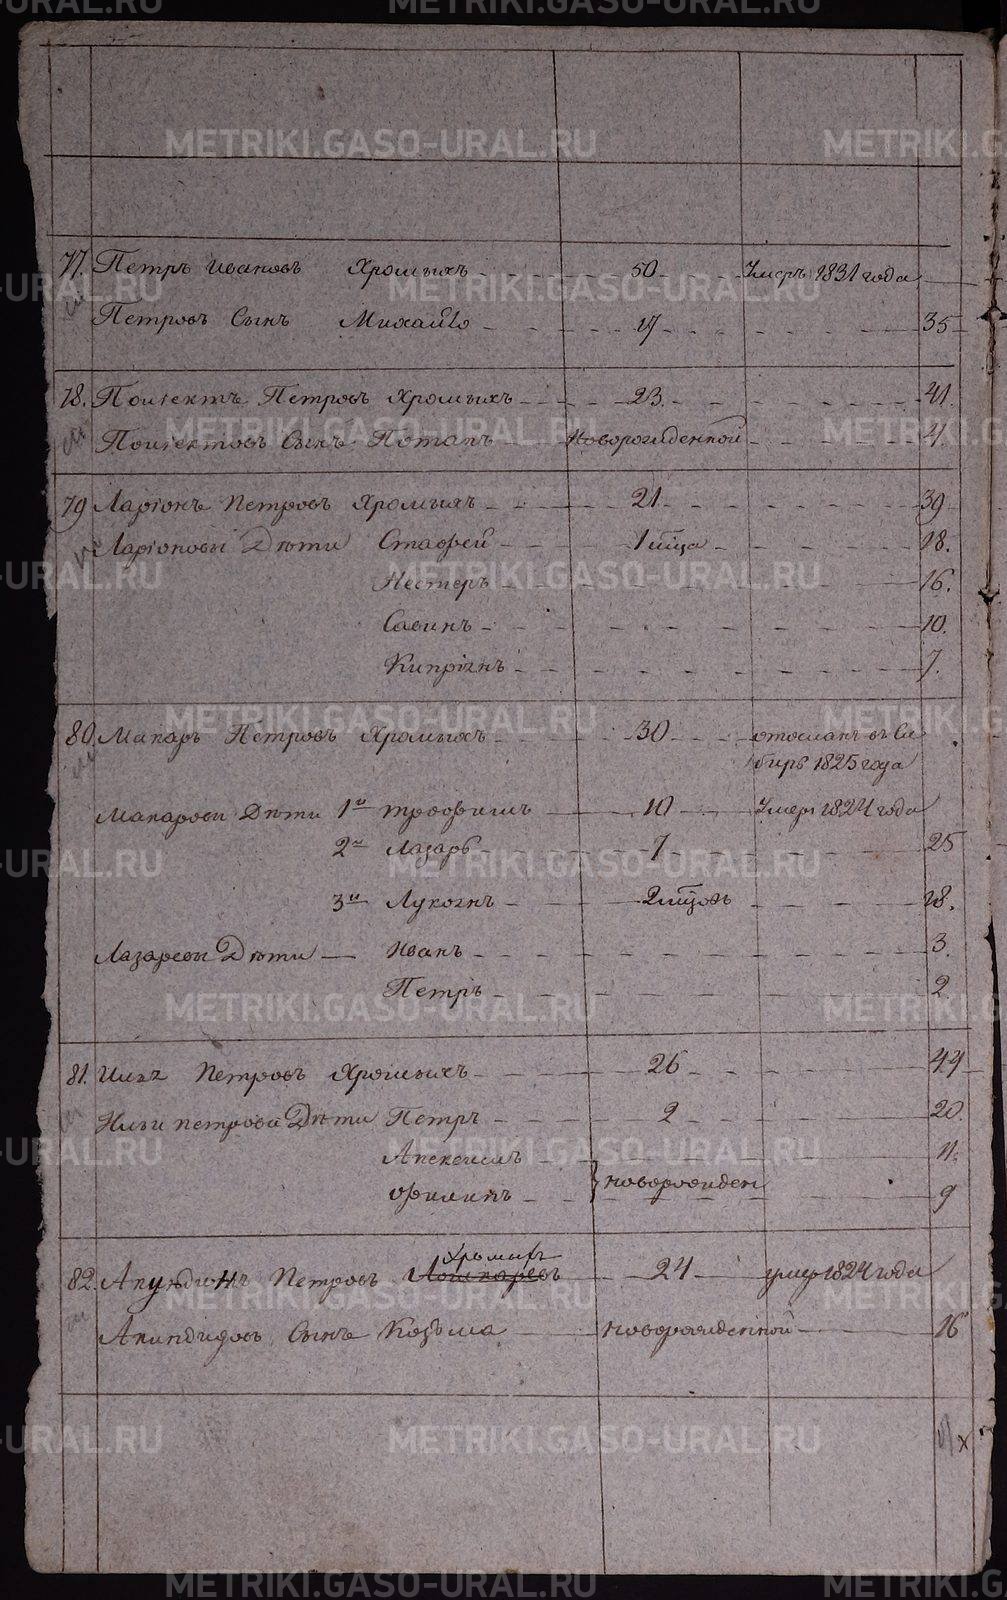 77. Петръ Ивановъ Хромыхъ 50 Умеръ 1831 года
Петровъ Сынъ Михайло 17 35
78. Полiектъ Петровъ Хромыхъ 23. 41.
Полiектовъ Сынъ Потапъ Новорожденной 4.
79 Ларiонъ Петровъ Хромыхъ 21. 39
Ларiоновы Дѣти Стафей 18.
Нестеръ 16.
Савинъ 10.
Кипрiянъ 7.
80. Макаръ Петровъ Хромыхъ 30 отосланъ въ Си
бирь 1825 года
Макаровы Дѣти 1й Трофимъ 10 Умеръ 1824 года
2й Лазарь 7 25
3й Лукоянъ 18.
Лазаревы Дѣти Иванъ 3.
Петръ 2.
81. Илья Петровъ Хромыхъ 26 44
Ильи петрова Дѣти Петръ 2 20.
Алексеимъ 11.
Филипъ новорожден 9
Хромыхъ
82. Петровъ Лошкаревъ 24 умер 1824 года
Сынъ Козьма новорожденной 16
METRIKI.GASO-URAL.RU